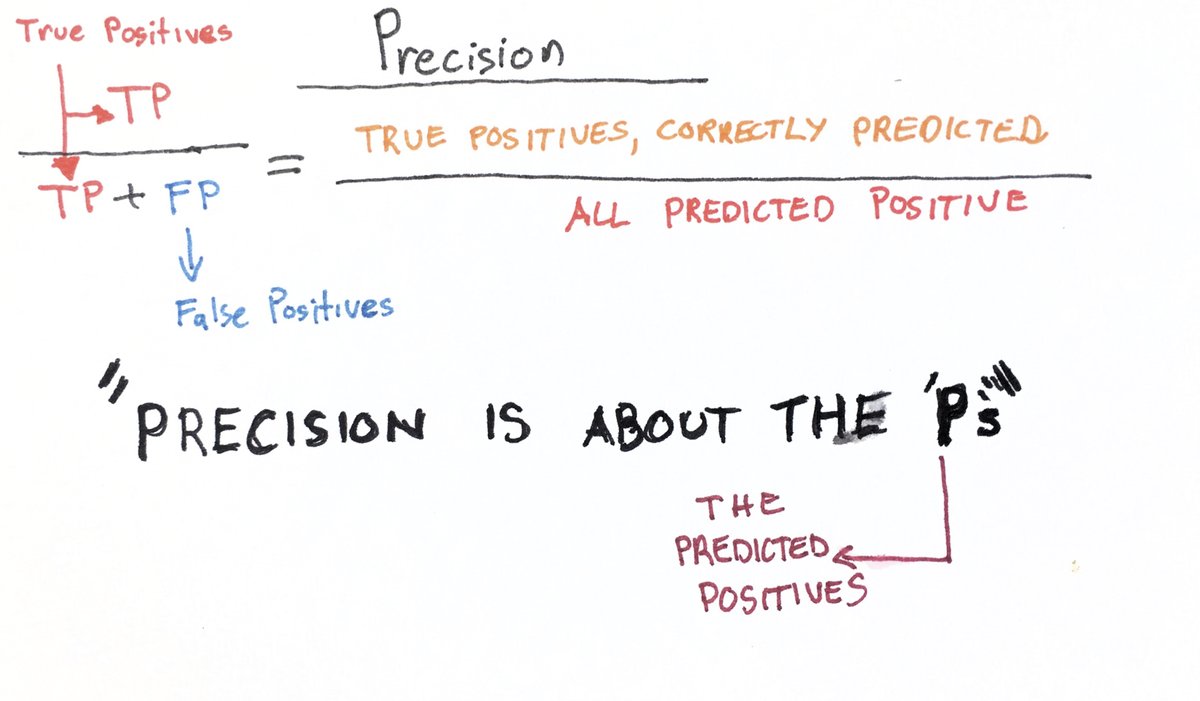 True Positives
Precision
TP
TP + FP
=
TRUE POSITIVES, CORRECTLY PREDICTED
ALL PREDICTED POSITIVE
False Positives
"PRECISION IS ABOUT THE 'P's"
THE
PREDICTED
POSITIVES